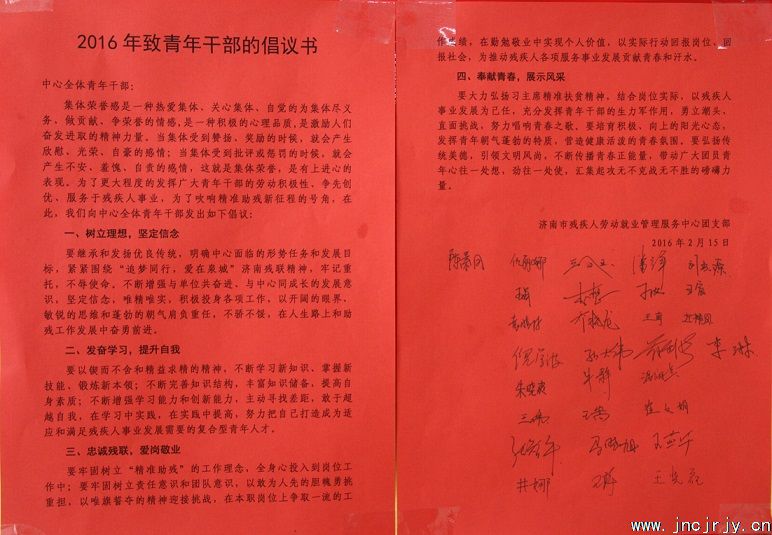 2016 年致青年干部的倡议书
中心全体青年干部：
集体荣誉感是一种热爱集体、关心集体、自觉的为集体尽义
务，做贡献、争荣誉的情感，是一种积极的心理品质，是激励人们
奋发进取的精神力量。当集体受到赞扬、奖励的时候，就会产生
欣慰、光荣、自豪的感情；当集体受到批评或惩罚的时候，就会
产生不安、羞愧、自责的感情，这就是集体荣誉，是有上进心的
表现。为了更大程度的发挥广大青年干部的劳动积极性、争先创
优、服务于残疾人事业，为了吹响精准助残新征程的号角，在
此，我们向中心全体青年干部发出如下倡议：
一、树立理想，坚定信念
要继承和发扬优良传统，明确中心面临的形势任务和发展目
标，紧紧围绕“追梦同行，爱在泉城”济南残联精神，牢记重
托，不辱使命，不断增强与单位共奋进、与中心同成长的发展意
识，坚定信念，唯精唯实，积极投身各项工作，以开阔的眼界、
敏锐的思维和蓬勃的朝气肩负重任，不骄不馁，在人生路上和助
残工作发展中奋勇前进。
二、发奋学习，提升自我
要以锲而不舍和精益求精的精神，不断学习新知识、掌握新
技能、锻炼新本领；不断完善知识结构，丰富知识储备，提高自
身素质；不断增强学习能力和创新能力，主动寻找差距，敢于超
越自我，在学习中实践，在实践中提高，努力把自己打造成为适
应和满足残疾人事业发展需要的复合型青年人才。
三、忠诚残联，爱岗敬业
要牢固树立“精准助残”的工作理念，全身心投入到岗位工
作中；要牢固树立责任意识和团队意识，以敢为人先的胆魄勇挑
重担，以唯旗誓夺的精神迎接挑战，在本职岗位上争取一流的工
作成绩，在勤勉敬业中实现个人价值，以实际行动回报岗位、回
报社会，为推动残疾人各项服务事业发展贡献青春和汗水。
四、奉献青春，展示风采
要大力弘扬习主席精准扶贫精神，结合岗位实际，以残疾人
事业发展为己任，充分发挥青年干部的生力军作用，勇立潮头、
直面挑战，努力唱响青春之歌。要培育积极、向上的阳光心态，
发挥青年朝气蓬勃的特质，营造健康活泼的青春氛围。要弘扬传
统美德，引领文明风尚，不断传播青春正能量，带动广大团员青
年心往一处想，劲往一处使，汇集起攻无不克战无不胜的磅礴力
量。
济南市残疾人劳动就业管理服务中心团支部
2016 年 2 月 15 日
李琳
井娜
www.jncjrjy.cn